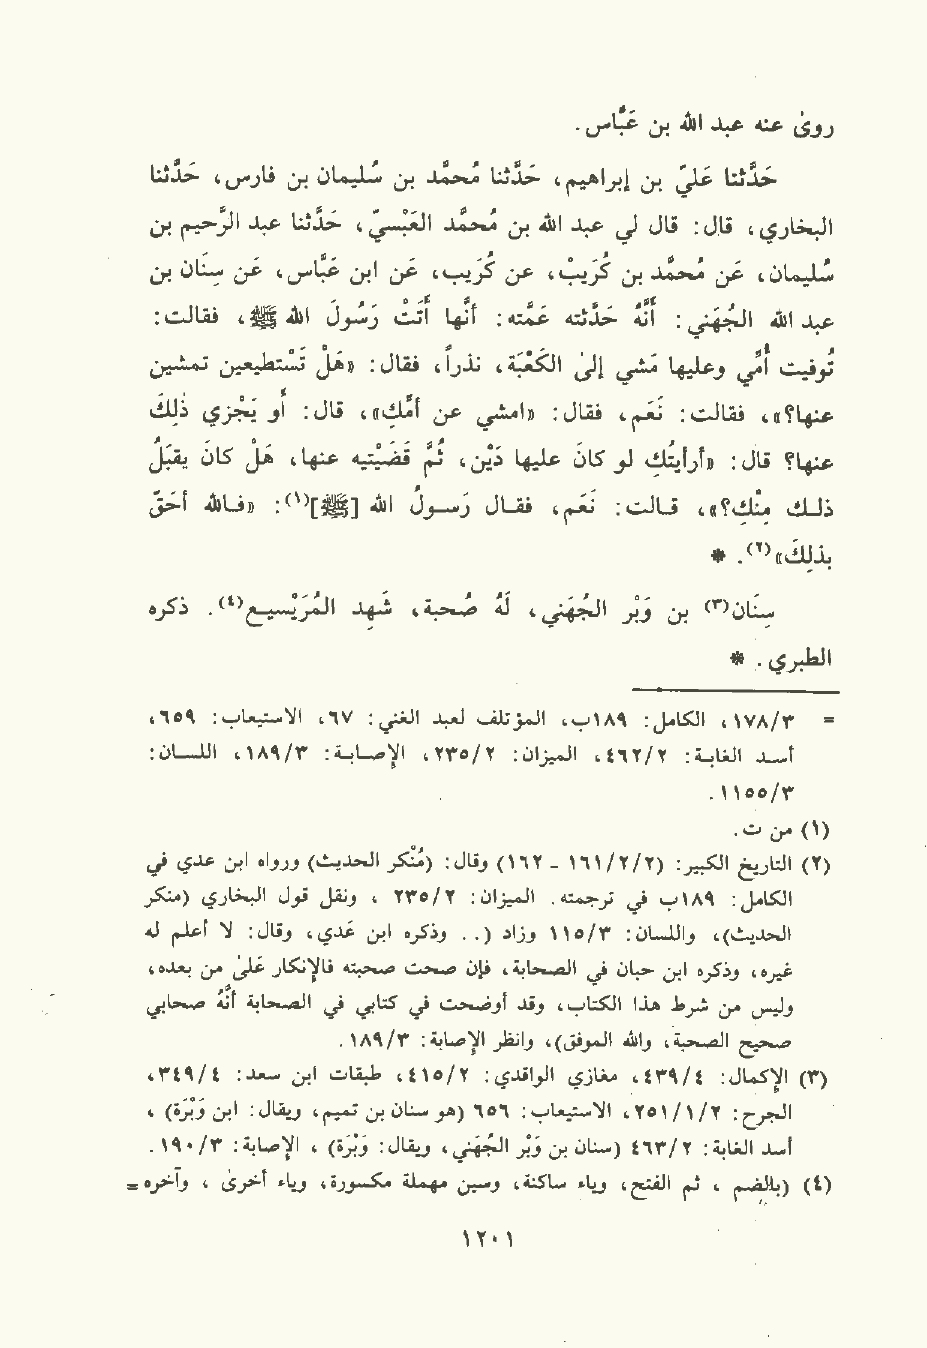 روىٰ عنه عبد الله بن عَبَّاس.
حَدَّثنا عَليّ بن إبراهيم، حَدَّثنا مُحمَّد بن سُليمان بن فارس، حَدَّثنا
البخاري، قال: قال لي عبد الله بن مُحمَّد العَبْسيّ، حَدَّثنا عبد الرَّحيم بن
سُليمان، عَن مُحمَّد بن كُرَيْب، عن كُرَيب، عَن ابن عَبَّاس، عَن سِنَان بن
عبد الله الجُهَني: أنَّهُ حَدَّثته عَمَّته: أنَّها أتَتْ رَسُولَ الله ﷺ، فقالت:
تُوفيت أُمِّي وعليها مَشي إلىٰ الكَعْبَة، نذراً، فقال: «هَلْ تَسْتطيعين تمشين
عنها؟»، فقالت: نَعَم، فقال: «امشي عن أُمِّك»، قال: أو يَجْزي ذلِكَ
عنها؟ قال: «أرأيتِك لو كانَ عليها دَيْن، ثُمَّ قَضَيْتِيه عنها، هَلْ كانَ يقبَلُ
ذلك مِنْكِ؟»، قالت: نَعَم، فقال رَسولُ الله [ﷺ](١): «فالله أحَقّ
بذلِكَ»(٢). *
سِنَان(٣) بن وَبْر الجُهَني، لَهُ صُحبة، شَهِد المُرَيْسيع(٤). ذكره
الطبري. *
= ١٧٨/٣، الكامل: ١٨٩ب، المؤتلف لعبد الغني: ٦٧، الاستيعاب: ٦٥٩،
أسد الغابة: ٤٦٢/٢، الميزان: ٢٣٥/٢، الإصابة: ١٨٩/٣، اللسان:
١١٥٥/٣.
(١) من ت.
(٢) التاريخ الكبير: (١٦١/٢/٢ - ١٦٢) وقال: (مُنْكر الحديث) ورواه ابن عدي في
الكامل: ١٨٩ب في ترجمته. الميزان: ٢٣٥/٢ ، ونقل قول البخاري (منكر
الحديث)، واللسان: ١١٥/٣ وزاد (.. وذكره ابن عَدي، وقال: لا أعلم له
غيره، وذكره ابن حبان في الصحابة، فإن صحت صحبته فالإنكار علىٰ من بعده،
وليس من شرط هذا الكتاب، وقد أوضحت في كتابي في الصحابة أنَّهُ صحابي
صحيح الصحبة، والله الموفق)، وانظر الإصابة: ١٨٩/٣.
(٣) الإكمال: ٤٣٩/٤، مغازي الواقدي: ٤١٥/٢، طبقات ابن سعد: ٣٤٩/٤،
الجرح: ٢٥١/١/٢، الاستيعاب: ٦٥٦ (وهو سنان بن تميم، ويقال: ابن وَبْرَة) ،
أسد الغابة: ٤٦٣/٢ (سنان بن وَبْر الجُهَني، ويقال: وَبْرَة) ، الإصابة: ١٩٠/٣.
(٤) (بالضم ، ثم الفتح، وياء ساكنة، وسين مهملة مكسورة، وياء أخرىٰ ، وآخره =
١٢٠١